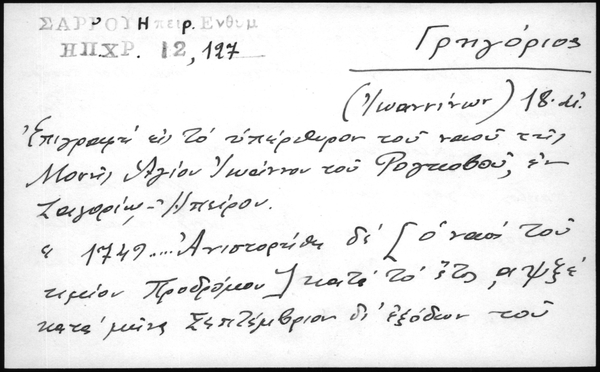 ΣΑΡΡΟΥ Ηπειρ. Ενθυμ
ΗΠΧΡ. 12, 127
Γρηγόριος
(Ἰωαννίνων) 18. αἰ.
Ἐπιγραφή εἰς τό ὑπέρθυρον τοῦ ναοῦ τῆς
Μονῆς Ἁγίου Ἰωάννου τοῦ Ρογκοβοῦ, ἐν
Ζαγορίῳ, Ἠπείρου.
ε 1749.... Ἀνιστορήθη δέ [ὁ ναός τοῦ
τιμίου Προδρόμου] κατά τό ἔτος, αψξε΄
κατά μῆνα Σεπτέμβριον δι' ἐξόδων τοῦ